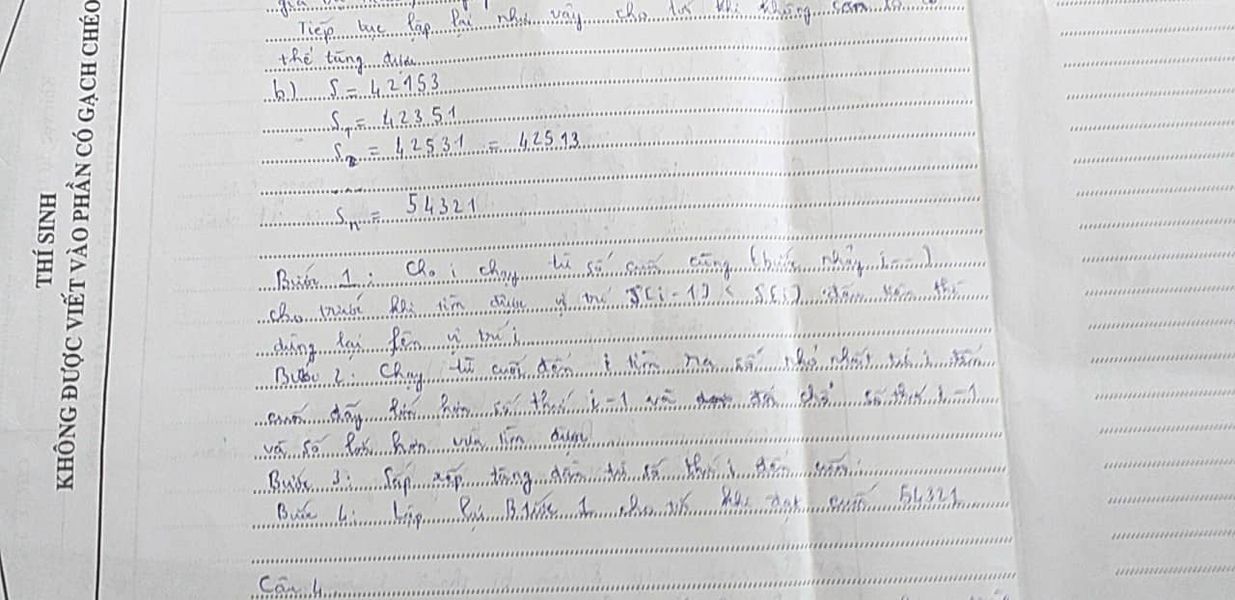 THÍ SINH
KHÔNG ĐƯỢC VIẾT VÀO PHẦN CÓ GẠCH CHÉO
Tiếp tục lặp lại như vậy cho tới khi không
thể tăng được
b.) S = 42153
S1 = 42351
S2 = 42531 = 42513
......
Sn = 54321
Bước 1: Cho i chạy từ số cuối cùng (bước nhảy i--)
cho trước khi tìm được vị trí S(i-1) < S(i) đầu tiên thì
dừng lại lên vị trí i
Bước 2: Chạy từ cuối đến i tìm ra số nhỏ nhất từ i đến
cuối dãy lớn hơn số thứ i-1 và đổi chỗ số thứ i-1
và số lớn hơn vừa tìm được
Bước 3: Sắp xếp tăng dần từ số thứ i đến cuối.
Bước 4: Lặp lại Bước 1 cho tới khi đạt cuối 54321
Câu 4